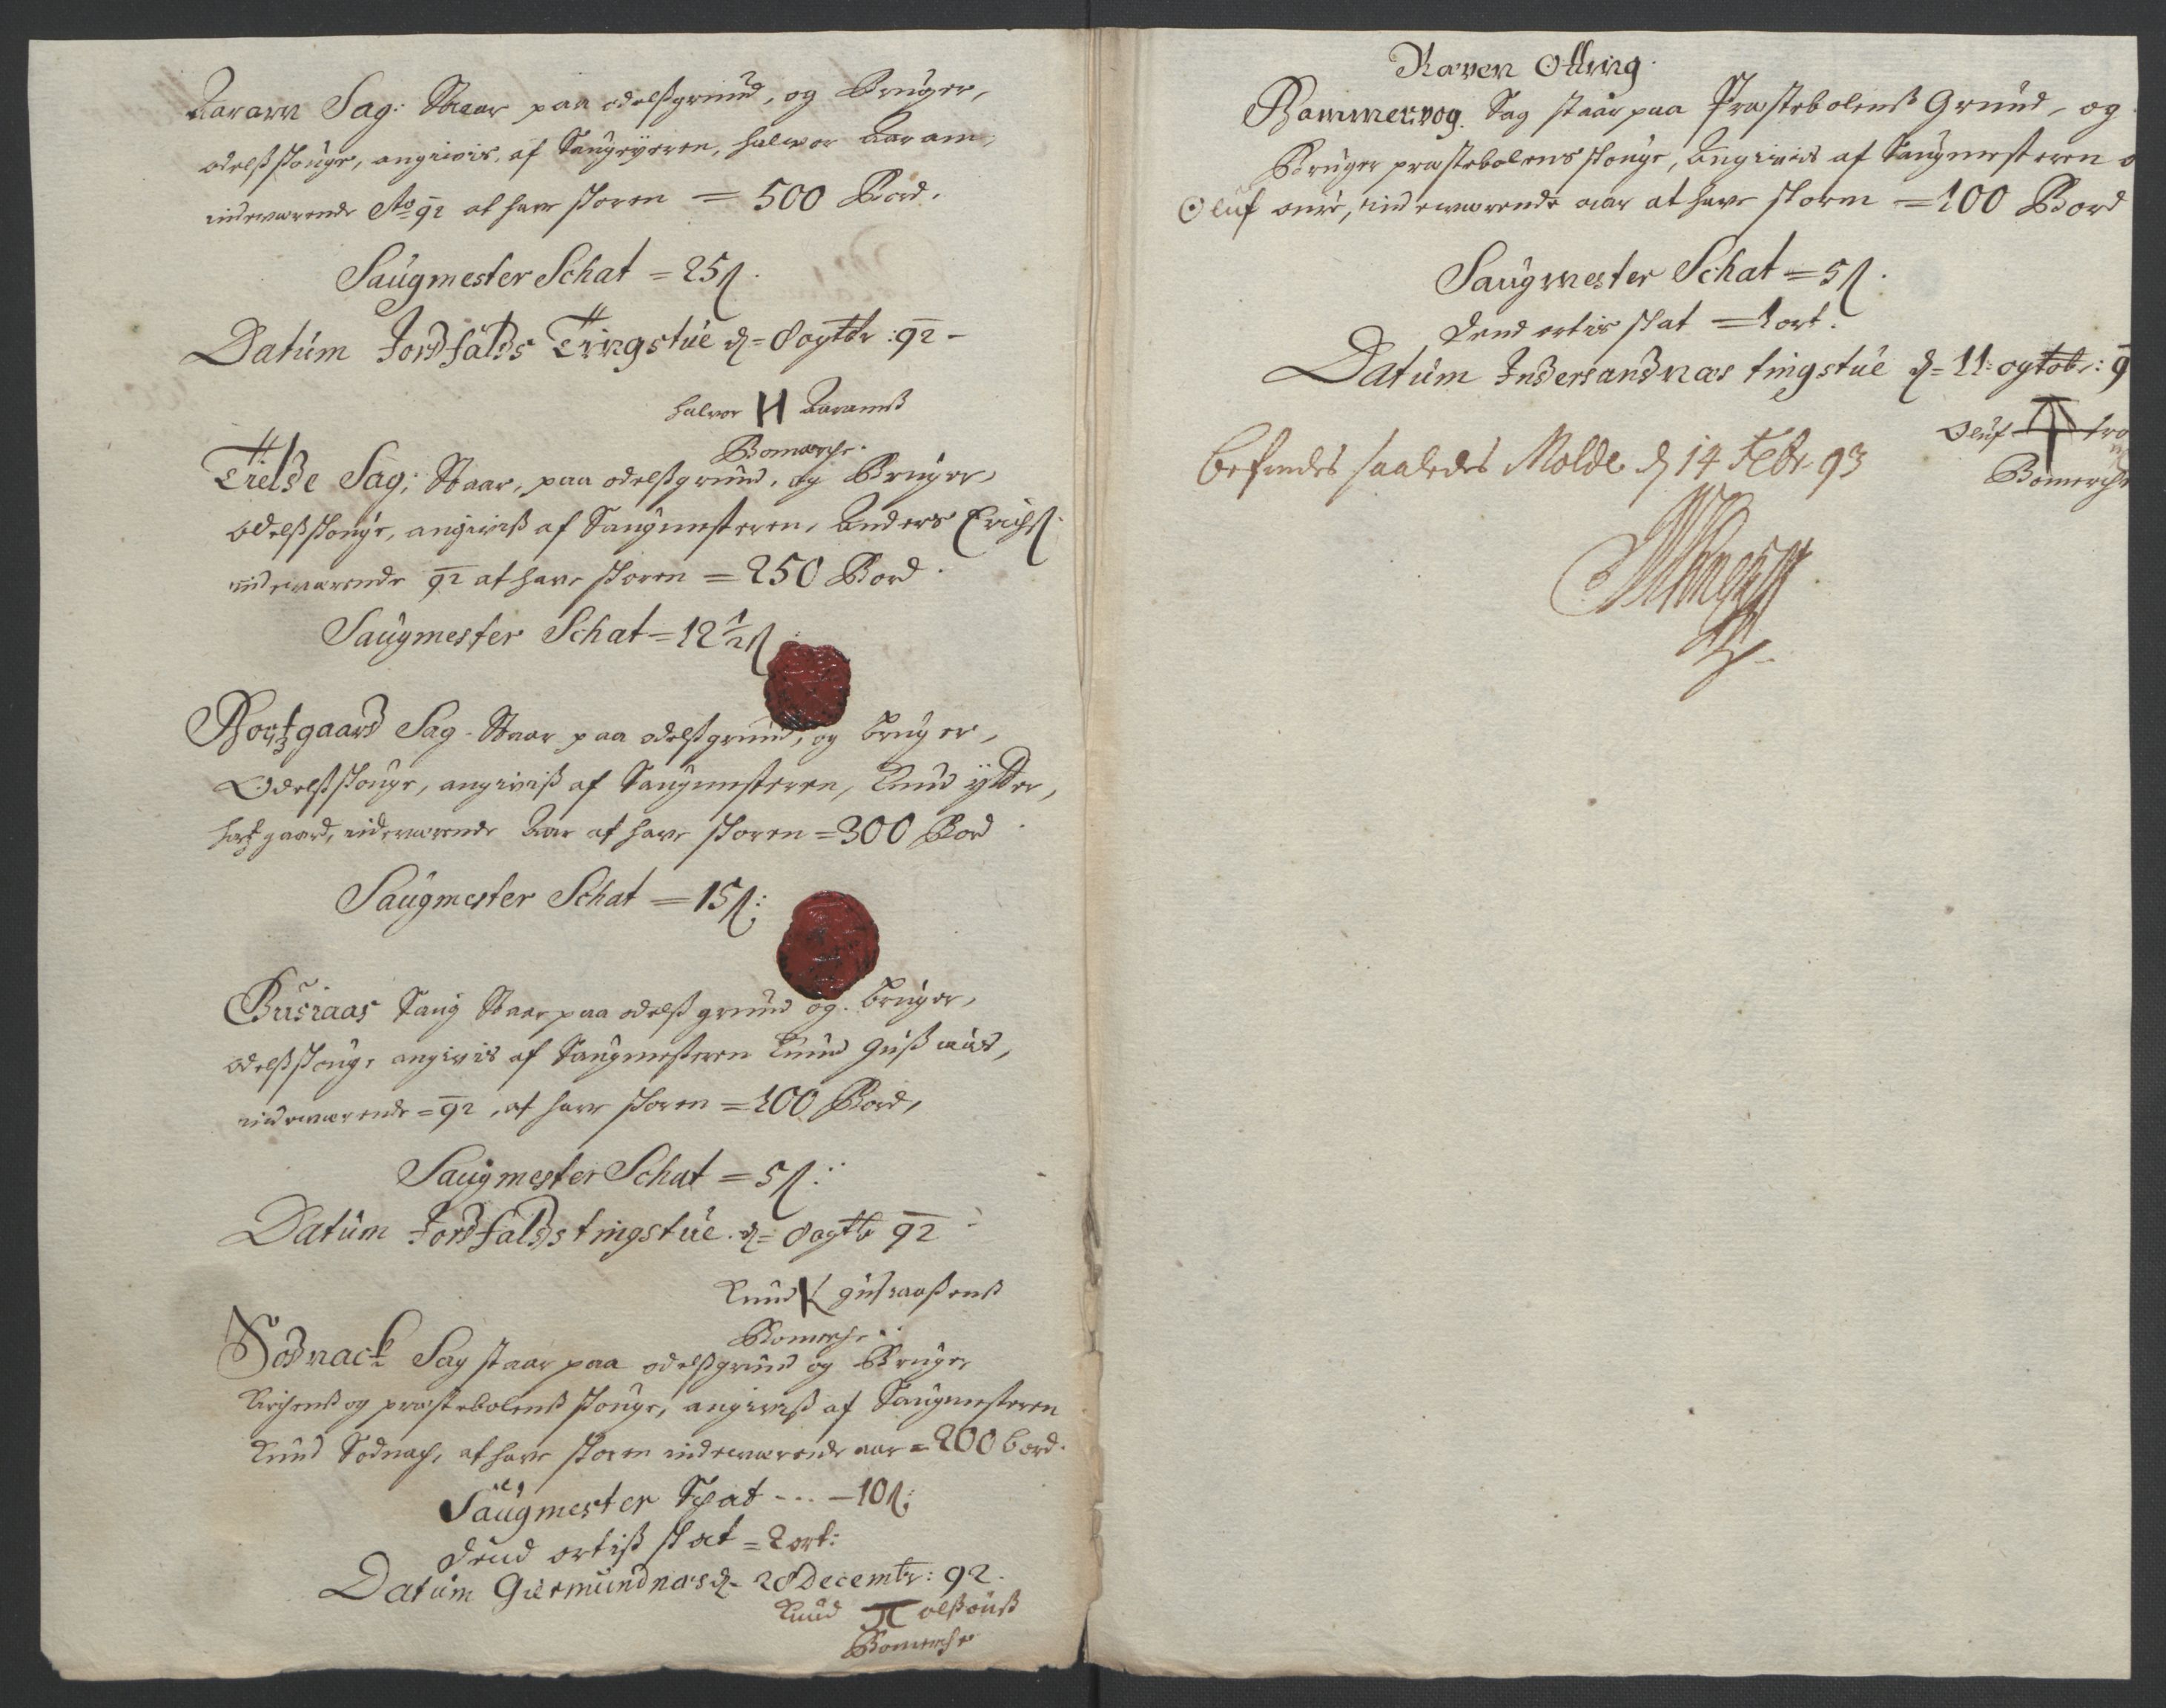 Aararn Sag: Staar paa odelsgrund, og Bruger,
odelsskouge, angivis, af Saugeyeren, Halvor Aaram,
indeværende Ao 92 at have skoren = 500 Bord.
Saugmester Schat = 25 ß.
Datum Jordfalds Tingstue d= 8 ogtbr: 92 –
Halvor H Aaramß
Bomerche.
Trelde Sag; Staar, paa odelsgrund, og Bruger
odelsskouge, angiviß af Saugmesteren, Anders Erichß:
indeværende 92 at have skoren = 250 Bord.
Saugmester Schat = 12 1/2 ß
Hortzgaard Sag. Staar paa odelßgrund, og bruger,
Odelßskouge, angiviß af Saugmesteren, Knud ytter,
hortzgaard, indeværende Aar at have skoren = 300 Bord
Saugmester Schat = 15 ß:
Gusiaas Saug Staar paa odelß grund og bruger,
odelßskouge angivis af Saugmesteren Knud
indeværende = 92, at have skoren = 100 Bord,
Saugmester Schat = 5 ß:
Datum Jordfalds tingstue. d= 8 ogtb 92
Knud K
Bomerche.
Sodnack Sag staar paa odelßgrund og Bruger
Kirchens og præstebolenß skouge, angiviß af Saugmesteren
Knud Sodnach, at have skoren indeværende aar = 200 bord.
Saugmester Schat - . . – 10 ß:
Dend ortiß skat = 2 ort:
Datum Giermundnæs d= 28 Decembr: 92.
Knud olßönß
Bomerche
Raven Otting.
Hammervog. Sag staar paa Præstebolenß Grund, og
Bruger præstebolens skouge, Angivis af Saugmesteren
Oluf indeværende aar at have skoren = 100 Bord
Saugmester Schat = 5 ß.
Dend ortis skat = 1 ort.
Datum Indersandnæs tingstue d= 11: ogtobr: 9
Oluf
Bomerche
Befindes saaledes Molde d 14 Febr. 93